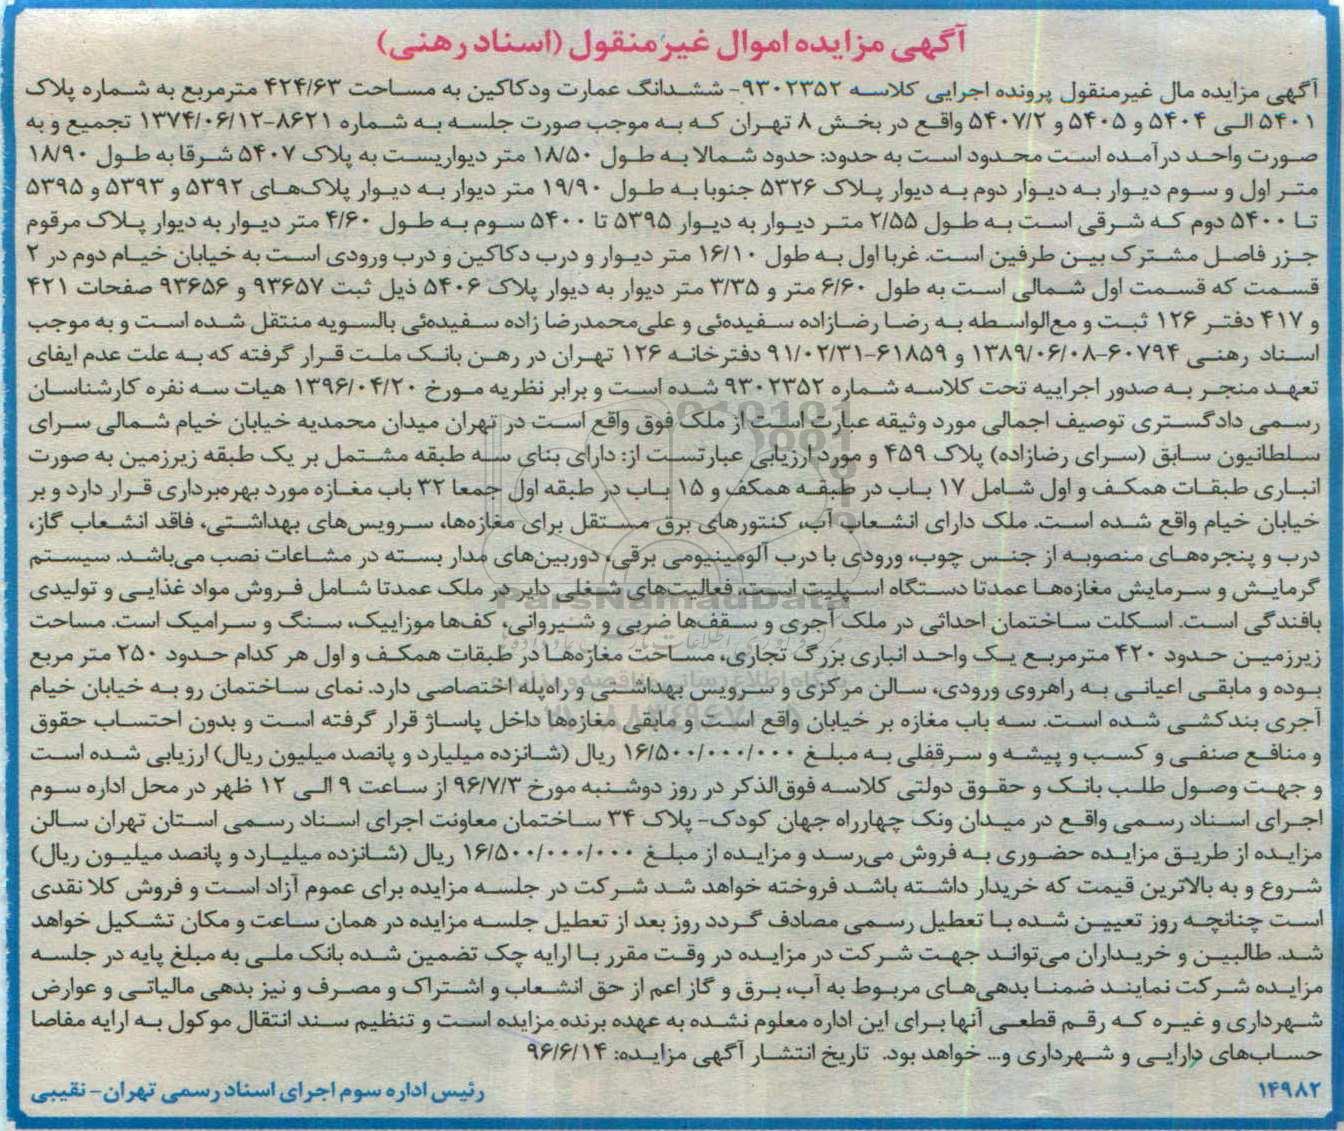 آگهی مزایده اموال غیرمنقول (اسناد رهنی)
آگهی مزایده مال غیرمنقول پرونده اجرایی کلاسه ۹۳۰۲۳۵۲- ششدانگ عمارت ودکاکین به مساحت ۴۲۴/۶۳ مترمربع به شماره پلاک
۵۴۰۱ الی ۵۴۰۴ و ۵۴۰۵ و ۵۴۰۷/۲ واقع در بخش ۸ تهران که به موجب صورت جلسه به شماره ۸۶۲۱-۱۳۷۴/۰۶/۱۲ تجمیع و به
صورت واحد درآمده است محدود است به حدود: حدود شمالا به طول ۱۸/۵۰ متر دیواریست به پلاک ۵۴۰۷ شرقا به طول ۱۸/۹۰
متر اول و سوم دیوار به دیوار دوم به دیوار پلاک ۵۳۲۶ جنوبا به طول ۱۹/۹۰ متر دیوار به دیوار پلاک‌های ۵۳۹۲ و ۵۳۹۳ و ۵۳۹۵
تا ۵۴۰۰ دوم که شرقی است به طول ۲/۵۵ متر دیوار به دیوار ۵۳۹۵ تا ۵۴۰۰ سوم به طول ۴/۶۰ متر دیوار به دیوار پلاک مرقوم
جزر فاصل مشترک بین طرفین است. غربا اول به طول ۱۶/۱۰ متر دیوار و درب دکاکین و درب ورودی است به خیابان خیام دوم در ۲
قسمت که قسمت اول شمالی است به طول ۶/۶۰ متر و ۳/۳۵ متر دیوار به دیوار پلاک ۵۴۰۶ ذیل ثبت ۹۳۶۵۷ و ۹۳۶۵۶ صفحات ۴۲۱
و ۴۱۷ دفتر ۱۲۶ ثبت و مع‌الواسطه به رضا رضازاده سفیده‌ئی و علی‌محمدرضا زاده سفیده‌ئی بالسویه منتقل شده است و به موجب
اسناد رهنی ۶۰۷۹۴-۱۳۸۹/۰۶/۰۸ و ۶۱۸۵۹-۹۱/۰۲/۳۱ دفترخانه ۱۲۶ تهران در رهن بانک ملت قرار گرفته که به علت عدم ایفای
تعهد منجر به صدور اجراییه تحت کلاسه شماره ۹۳۰۲۳۵۲ شده است و برابر نظریه مورخ ۱۳۹۶/۰۴/۲۰ هیات سه نفره کارشناسان
رسمی دادگستری توصیف اجمالی مورد وثیقه عبارت است از ملک فوق واقع است در تهران میدان محمدیه خیابان خیام شمالی سرای
سلطانیون سابق (سرای رضازاده) پلاک ۴۵۹ و مورد ارزیابی عبارتست از: دارای بنای سه طبقه مشتمل بر یک طبقه زیرزمین به صورت
انباری طبقات همکف و اول شامل ۱۷ باب در طبقه همکف و ۱۵ باب در طبقه اول جمعا ۳۲ باب مغازه مورد بهره‌برداری قرار دارد و بر
خیابان خیام واقع شده است. ملک دارای انشعاب آب، کنتورهای برق مستقل برای مغازه‌ها، سرویس‌های بهداشتی، فاقد انشعاب گاز،
درب و پنجره‌های منصوبه از جنس چوب، ورودی با درب آلومینیومی برقی، دوربین‌های مدار بسته در مشاعات نصب می‌باشد. سیستم
گرمایش و سرمایش مغازه‌ها عمدتا دستگاه اسپلیت است. فعالیت‌های شغلی دایر در ملک عمدتا شامل فروش مواد غذایی و تولیدی
بافندگی است. اسکلت ساختمان احداثی در ملک آجری و سقف‌ها ضربی و شیروانی، کف‌ها موزاییک، سنگ و سرامیک است. مساحت
زیرزمین حدود ۴۲۰ مترمربع یک واحد انباری بزرگ تجاری، مساحت مغازه‌ها در طبقات همکف و اول هر کدام حدود ۲۵۰ متر مربع
بوده و مابقی اعیانی به راهروی ورودی، سالن مرکزی و سرویس بهداشتی و راه‌پله اختصاصی دارد. نمای ساختمان رو به خیابان خیام
آجری بندکشی شده است. سه باب مغازه بر خیابان واقع است و مابقی مغازه‌ها داخل پاساژ قرار گرفته است و بدون احتساب حقوق
و منافع صنفی و کسب و پیشه و سرقفلی به مبلغ ۱۶/۵۰۰/۰۰۰/۰۰۰ ریال (شانزده میلیارد و پانصد میلیون ریال) ارزیابی شده است
و جهت وصول طلب بانک و حقوق دولتی کلاسه فوق‌الذکر در روز دوشنبه مورخ ۹۶/۷/۳ از ساعت ۹ الی ۱۲ ظهر در محل اداره سوم
اجرای اسناد رسمی واقع در میدان ونک چهارراه جهان کودک- پلاک ۳۴ ساختمان معاونت اجرای اسناد رسمی استان تهران سالن
مزایده از طریق مزایده حضوری به فروش می‌رسد و مزایده از مبلغ ۱۶/۵۰۰/۰۰۰/۰۰۰ ریال (شانزده میلیارد و پانصد میلیون ریال)
شروع و به بالاترین قیمت که خریدار داشته باشد فروخته خواهد شد شرکت در جلسه مزایده برای عموم آزاد است و فروش کلا نقدی
است چنانچه روز تعیین شده با تعطیل رسمی مصادف گردد روز بعد از تعطیل جلسه مزایده در همان ساعت و مکان تشکیل خواهد
شد. طالبین و خریداران می‌تواند جهت شرکت در مزایده در وقت مقرر با ارایه چک تضمین شده بانک ملی به مبلغ پایه در جلسه
مزایده شرکت نمایند ضمنا بدهی‌های مربوط به آب، برق و گاز اعم از حق انشعاب و اشتراک و مصرف و نیز بدهی مالیاتی و عوارض
شهرداری و غیره که رقم قطعی آنها برای این اداره معلوم نشده به عهده برنده مزایده است و تنظیم سند انتقال موکول به ارایه مفاصا
حساب‌های دارایی و شهرداری و... خواهد بود. تاریخ انتشار آگهی مزایده: ۹۶/۶/۱۴
۱۴۹۸۲ رئیس اداره سوم اجرای اسناد رسمی تهران- نقیبی
ParsNamadData